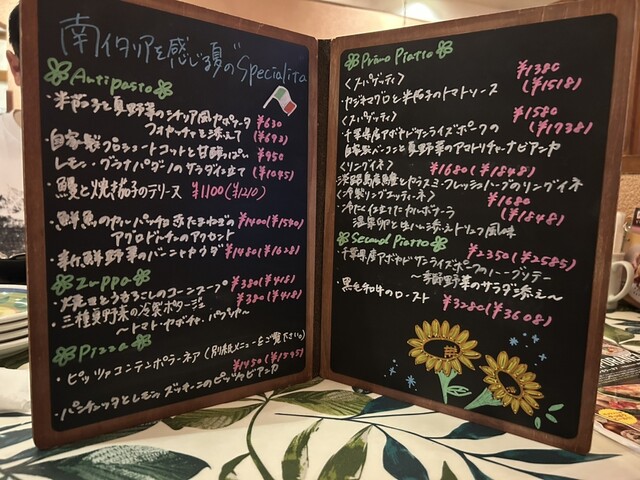 南イタリアを感じる夏の Specialità
Antipasto
・米茄子と夏野菜のシチリア風カポナータ ¥630
フォカッチャを添えて (¥693)
自家製プロシュートコットと甘酸っぱい ¥950
レモン・グラナパダーノのサラダ仕立て (¥1045)
・鰻と焼茄子のテリーヌ ¥1100 (¥1210)
・鮮魚のカルパッチョ 赤たまねぎの ¥1400 (¥1540)
アグロドルチェのアクセント
・新鮮野菜のバーニャカウダ ¥1480 (¥1628)
Zuppa
・焼とうもろこしのコーンスープ ¥380 (¥418)
・三種夏野菜の冷製ポタージュ ¥380 (¥418)
～トマト・カボチャ・
Pizza
・ピッツァコンテンポラーネア (別紙メニューをご覧下さい。)
¥1450 (¥1595)
・パンチェッタとレモン、ズッキーニのピッツァビアンカ
Primo Piatto
〈スパゲッティ〉 ¥1380
ヤシオマグロと米茄子のトマトソース (¥1518)
〈スパゲッティ〉 ¥1580
千葉県産アボカドサンライズポークの (¥1738)
自家製ベーコンと夏野菜のアマトリチャーナビアンカ
〈リングイネ〉 ¥1680 (¥1848)
淡路島産鱧とカラスミ・フレッシュハーブのリングイネ
〈冷製リングエッティーネ〉 ¥1680
冷たく仕立てたカルボナーラ (¥1848)
温泉卵と生ハム添え トリュフ風味
Second Piatto ¥2350 (¥2585)
千葉県産アボカドサンライズポークのハーブソテー
～夏野菜のサラダ添え～
・黒毛和牛のロースト ¥3280 (¥3608)